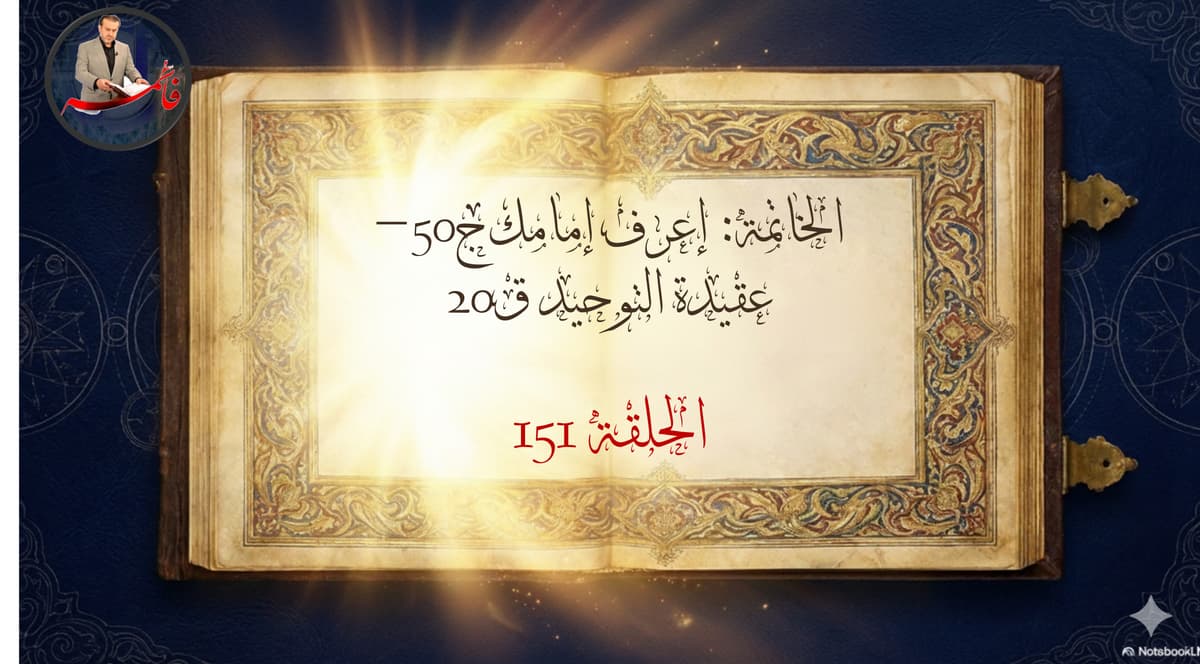 فاطمة
الخاتمة: إعرف إمامك ج50 –
عقيدة التوحيد ق20
الحلقة 151
NotsbookLM